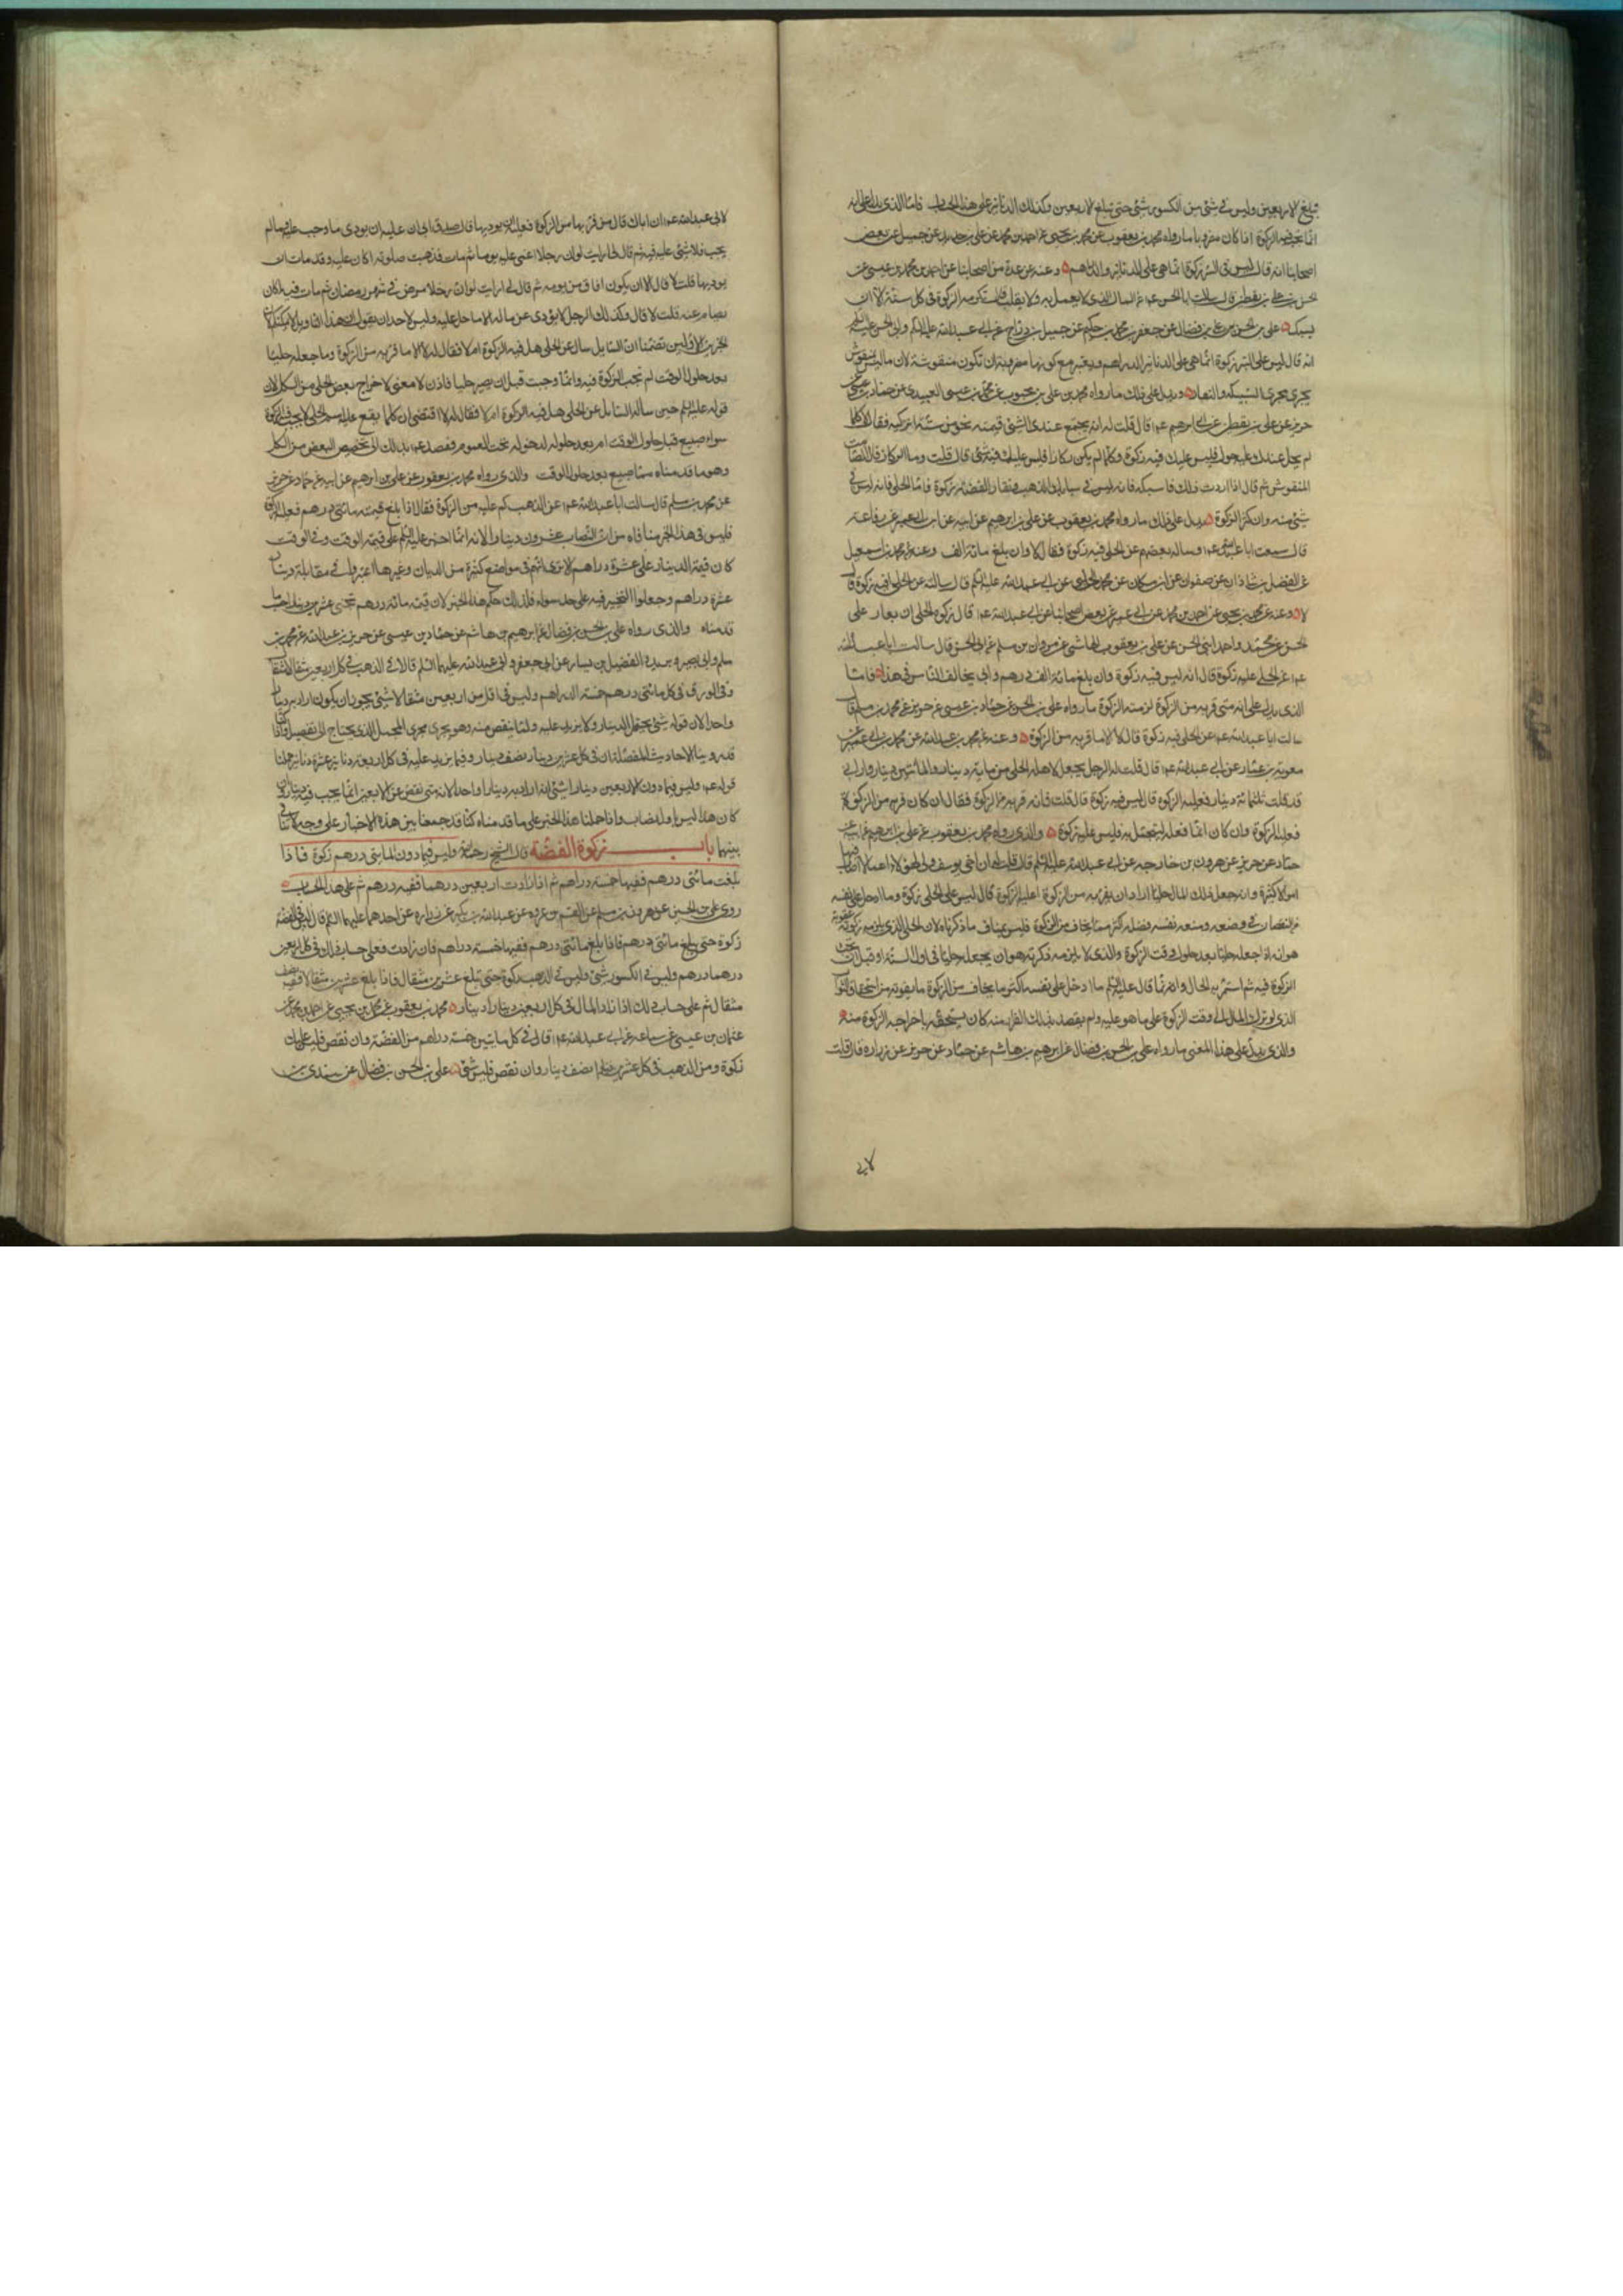 تبلغ الاربعين وليس في شئ من الكسور شئ حتى تبلغ الاربعين وكذلك الدنانير على هذا الحساب فاما الذي يدل على انه
انما تجب فيه الزكوة اذا كان مضروبا ما رواه محمد بن يعقوب عن محمد بن يحيى عن احمد بن محمد عن علي بن حديد عن جميل عن بعض
اصحابنا انه قال ليس في التبر زكوة انما هي على الدنانير والدراهم وعنه عن عدة من اصحابنا عن احمد بن محمد بن عيسى عن
الحسن بن علي بن يقطين قال سالت ابا الحسن عم عن المال الذي لا يعمل به ولا يقلب قال تلزمه الزكوة في كل سنة الا ان
يسبك علي بن الحسن بن علي بن فضال عن جعفر بن محمد بن حكيم عن جميل بن دراج عن ابي عبد الله عليه السلم وابي الحسن عليه السلم
انه قال ليس على التبر زكوة انما هي على الدنانير والدراهم ويعتبر مع كونها مضروبة ان تكون منقوشة لان ما ليس بمنقوش
يجري مجرى السبيكة والنقار ويدل على ذلك ما رواه محمد بن علي بن محبوب عن محمد بن عيسى العبيدي عن حماد بن عيسى
حريز عن علي بن يقطين عن ابي ابرهيم عم قال قلت له انه يجتمع عندي الشئ قيمته نحو من سنة انزكيه فقال لا كلما
لم يحل عندك عليه حول فليس عليك فيه زكوة وكلما لم يكن ركازا فليس عليك فيه شئ قال قلت وما الركاز قال الصامت
المنقوش ثم قال اذا اردت ذلك فاسبكه فانه ليس في سبايك الذهب ونقار الفضة زكوة فاما الحلي فانه ليس في
شئ منه وان كثر الزكوة يدل على ذلك ما رواه محمد بن يعقوب عن علي بن ابرهيم عن ابيه عن ابن ابي عمير عن رفاعة
قال سمعت ابا عبد الله عم وساله بعضهم عن الحلي فيه زكوة فقال لا وان بلغ مائة الف وعنه عن محمد بن اسمعيل
عن الفضل بن شاذان عن صفوان عن ابن مسكان عن محمد الحلبي عن ابي عبد الله عليه السلم قال سالته عن الحلي افيه زكوة قال
لا وعنه عن محمد بن يحيى عن احمد بن محمد عن ابن ابي عمير عن بعض اصحابنا عن ابي عبد الله عم قال زكوة الحلي ان يعار علي
الحسن عن محمد واحمد ابني الحسن عن علي بن يعقوب الهاشمي عن مروان بن مسلم عن ابي الحسن قال سالت ابا عبد الله
عم عن الحلي عليه زكوة قال انه ليس فيه زكوة وان بلغ مائة الف درهم وابي يخالف الناس في هذا فاما
الذي يدل على انه متى فر به من الزكوة لزمته الزكوة ما رواه علي بن الحسن عن حماد بن عيسى عن حريز عن محمد بن مسلم قال
سالت ابا عبد الله عم عن الحلي فيه زكوة قال لا الا ما فر به من الزكوة وعنه عن محمد بن عبد الله عن محمد بن ابي عمير عن
معوية بن عمار عن ابي عبد الله عم قال قلت له الرجل يجعل لاهله الحلي من مائة دينار والمائتين دينار واراني
قد قلت ثلثمائة دينار فعليه الزكوة قال ليس فيه زكوة قال قلت فانه فر به من الزكوة فقال ان كان فر به من الزكوة
فعليه الزكوة وان كان انما فعله ليتجمل به فليس عليه زكوة والذي رواه محمد بن يعقوب عن علي بن ابرهيم عن ابيه عن
حماد عن حريز عن هرون بن خارجه عن ابي عبد الله عليه السلم قال قلت له ان اخي يوسف ولي لهؤلاء اعمالا اصاب فيها
اموالا كثيرة وانه جعل ذلك المال حليا اراد ان يفر به من الزكوة اعليه الزكوة قال ليس على الحلي زكوة وما ادخل على نفسه
من النقصان في وضعه ومنعه نفسه فضله اكثر مما يخاف من الزكوة فليس بمناف ما ذكرناه لان الحلي الذي يلزمه زكوته عقوبة
هو انه اذا جعله حليا بعد حلول وقت الزكوة والذي لا يلزمه زكوته هو ان يجعله حليا في اول السنة او قبل ان تجب
الزكوة فيه ثم استمر به الحال وانه انما قال عليه السلم ما ادخل على نفسه اكثر مما يخاف من الزكوة ما يفوته من استحقاق الثواب
الذي لو ترك المال الى وقت الزكوة على ما هو عليه ولم يقصد بذلك الفرار منه كان يستحقه باخراجه الزكوة منه
والذي يدل على هذا المعنى ما رواه علي بن الحسن بن فضال عن ابرهيم بن هاشم عن حماد عن حريز عن زرارة قال قلت
لابي
لابي عبد الله عم ان اباك قال من فر بها من الزكوة فعليه ان يوديها قال صدق ابي ان عليه ان يودي ما وجب عليه وما لم
يجب فلا شئ عليه فيه ثم قال لي ارايت لو ان رجلا اغمي عليه يوما ثم مات فذهبت صلوته اكان عليه وقد مات ان
يوديها قلت لا قال الا ان يكون افاق من يومه ثم قال لي ارايت لو ان رجلا مرض في شهر رمضان ثم مات فيه اكان
يصام عنه قلت لا قال وكذلك الرجل لا يؤدي عن ماله الا ما حل عليه وليس لاحد ان يقول ان هذا التاويل لا يمكنكم لان
الخبرين الاولين تضمنا ان السايل سال عن الحلي هل فيه الزكوة ام لا فقال له لا الا ما فر به من الزكوة وما جعله حليا
بعد حلول الوقت لم تجب الزكوة فيه وانما وجبت قبل ان يصير حليا فاذن لا معنى لاخراج بعض الحلي من الكل لان
قوله عليه السلم حين ساله السايل عن الحلي هل فيه الزكوة ام لا فقال له لا اقتضى ان كلما يقع عليه اسم الحلي لا يجب فيه الزكوة
سواء صيغ قبل حلول الوقت ام بعد حلوله لدخوله تحت العموم فقصد عم بذلك الى تخصيص البعض من الكل
وهو ما قدمناه مما صيغ بعد حلول الوقت والذي رواه محمد بن يعقوب عن علي بن ابرهيم عن ابيه عن حماد عن حريز
عن محمد بن مسلم قال سالت ابا عبد الله عم عن الذهب كم عليه من الزكوة فقال اذا بلغ قيمته مائتي درهم فعليه الزكوة
فليس في هذا الخبر منافاة من ان النصاب عشرون دينارا لانه انما اخبر عليه السلم على قيمة الوقت وفي الوقت
كان قيمة الدينار على عشرة دراهم لا ترى انهم في مواضع كثيرة من الديات وغيرها اعتبروا في مقابلة دينار
عشرة دراهم وجعلوا التخيير فيه على حد سواء فكذلك حكم هذا الخبر لان قيمة مائة درهم تجئ عشرين دينار حسب ما
قدمناه والذي رواه علي بن الحسن بن فضال عن ابرهيم بن هاشم عن حماد بن عيسى عن حريز بن عبد الله عن محمد بن
مسلم وابي بصير وبريد والفضيل بن يسار عن ابي جعفر وابي عبد الله عليهما السلم قالا في الذهب في كل اربعين مثقالا مثقال
وفي الورق في كل مائتي درهم خمسة الدراهم وليس في اقل من اربعين مثقالا شئ يجوز ان يكون اراد به دينارا
واحدا لان قوله شئ يحتمل الدينار ولا يزيد عليه ولما ينقص منه وهو يجري مجرى المجمل الذي يحتاج الى تفصيل واذا
قد روينا الاحاديث المفصلة ان في كل عشرين دينار نصف دينار وفيما يزيد عليه في كل اربعة دنانير عشر دنانير حملنا
قوله عم وليس فيما دون الاربعين دينارا شئ انه اراد به دينارا واحدا لانه متى نقص عن الاربعين انما يجب فيه دينار وان
كان هذا ليس باول نصاب واذا حملنا هذا الخبر على ما قدمناه كنا قد جمعنا بين هذه الاخبار على وجه لا تنافي
بينها باب زكوة الفضة قال الشيخ رحمه الله وليس فيما دون المائتي درهم زكوة فاذا
بلغت مائتي درهم ففيها خمسة دراهم ثم اذا زادت اربعين درهما ففيه درهم ثم على هذا الحساب
روى علي بن الحسن عن هرون بن مسلم عن القسم بن عروة عن عبد الله بن بكير عن زرارة عن احدهما عليهما السلم قال ليس في الفضة
زكوة حتى يبلغ مائتي درهم فاذا بلغ مائتي درهم ففيها خمسة دراهم فان زادت فعلى حساب ذلك في كل اربعين
درهما درهم وليس في الكسور شئ وليس في الذهب زكوة حتى تبلغ عشرين مثقال فاذا بلغ عشرين مثقالا ففيه نصف
مثقال ثم على حساب ذلك اذا زاد المال في كل اربعين دينارا دينار محمد بن يعقوب عن محمد بن يحيى عن احمد بن محمد عن
عثمان بن عيسى عن سماعة عن ابي عبد الله عم قال في كل مايتين خمسة دراهم من الفضة وان نقص فليس عليك
زكوة ومن الذهب في كل عشرين دينارا نصف دينار وان نقص فليس شئ علي بن الحسن بن فضال عن سندي بن